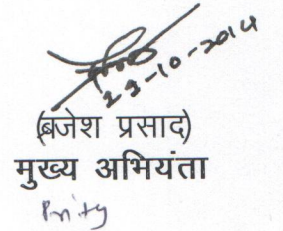 23-10-2014
(ब्रजेश प्रसाद)
मुख्य अभियंता
Prity